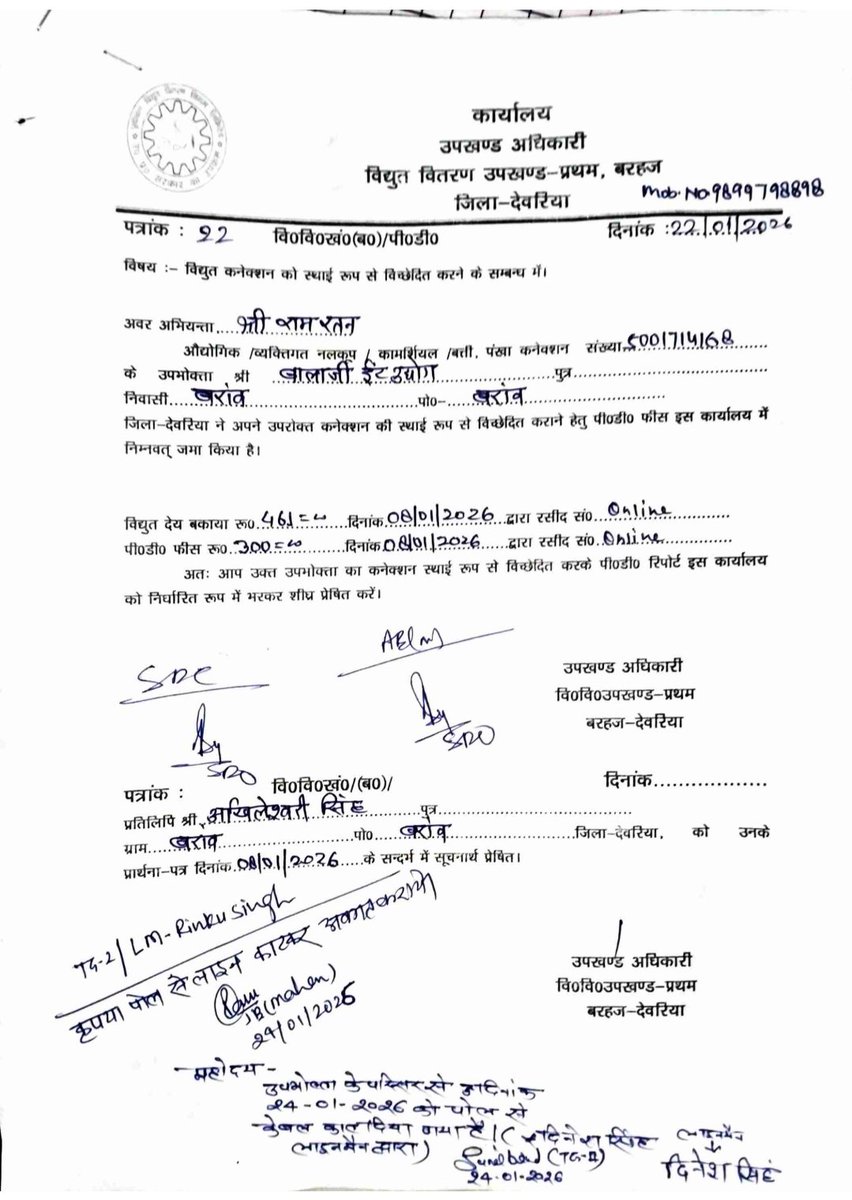 कार्यालय
उपखण्ड अधिकारी
विद्युत वितरण उपखण्ड–प्रथम, बरहज
जिला–देवरिया
Mob. No 9899798898
पत्रांक : 22 वि०वि०खं०(ब०)/पी०डी० दिनांक :22/01/2026
विषय :– विद्युत कनेक्शन को स्थाई रूप से विच्छेदित करने के सम्बन्ध में।
अवर अभियन्ता.....श्री राम रतन
औद्योगिक /व्यक्तिगत नलकूप / कामर्शियल /बत्ती, पंखा कनेक्शन संख्या 5001714168
के उपभोक्ता श्री ...बालाजी ईंट उद्योग...पुत्र...
निवासी....खरांव....पो०–....खरांव....
जिला–देवरिया ने अपने उपरोक्त कनेक्शन की स्थाई रूप से विच्छेदित कराने हेतु पी०डी० फीस इस कार्यालय में
निम्नवत् जमा किया है।
विद्युत देय बकाया रू० 461=00 दिनांक 08/01/2026 द्वारा रसीद सं० Online
पी०डी० फीस रू० 300=00 दिनांक 08/01/2026 द्वारा रसीद सं० Online
अतः आप उक्त उपभोक्ता का कनेक्शन स्थाई रूप से विच्छेदित करके पी०डी० रिपोर्ट इस कार्यालय
को निर्धारित रूप में भरकर शीघ्र प्रेषित करें।
SDC
उपखण्ड अधिकारी
वि०वि०उपखण्ड–प्रथम
बरहज–देवरिया
SDO SDO
पत्रांक : वि०वि०खं०/(ब०)/ दिनांक..................
प्रतिलिपि श्री अखिलेश्वरी सिंह पुत्र...
ग्राम....खरांव....पो० खरांव....जिला–देवरिया, को उनके
प्रार्थना–पत्र दिनांक 08/01/2026 के सन्दर्भ में सूचनार्थ प्रेषित।
TG-2/LM-Rinku Singh
कृपया पोल से लाइन काटकर अवगत कराये
24/01/2026
उपखण्ड अधिकारी
वि०वि०उपखण्ड–प्रथम
बरहज–देवरिया
महोदय –
उपभोक्ता के परिसर से दिनांक
24-01-2026 को पोल से
केबल काट दिया गया है। ( दिनेश सिंह
लाइनमैन द्वारा)
(TG-II)
24-01-2026
लाइनमैन
दिनेश सिंह